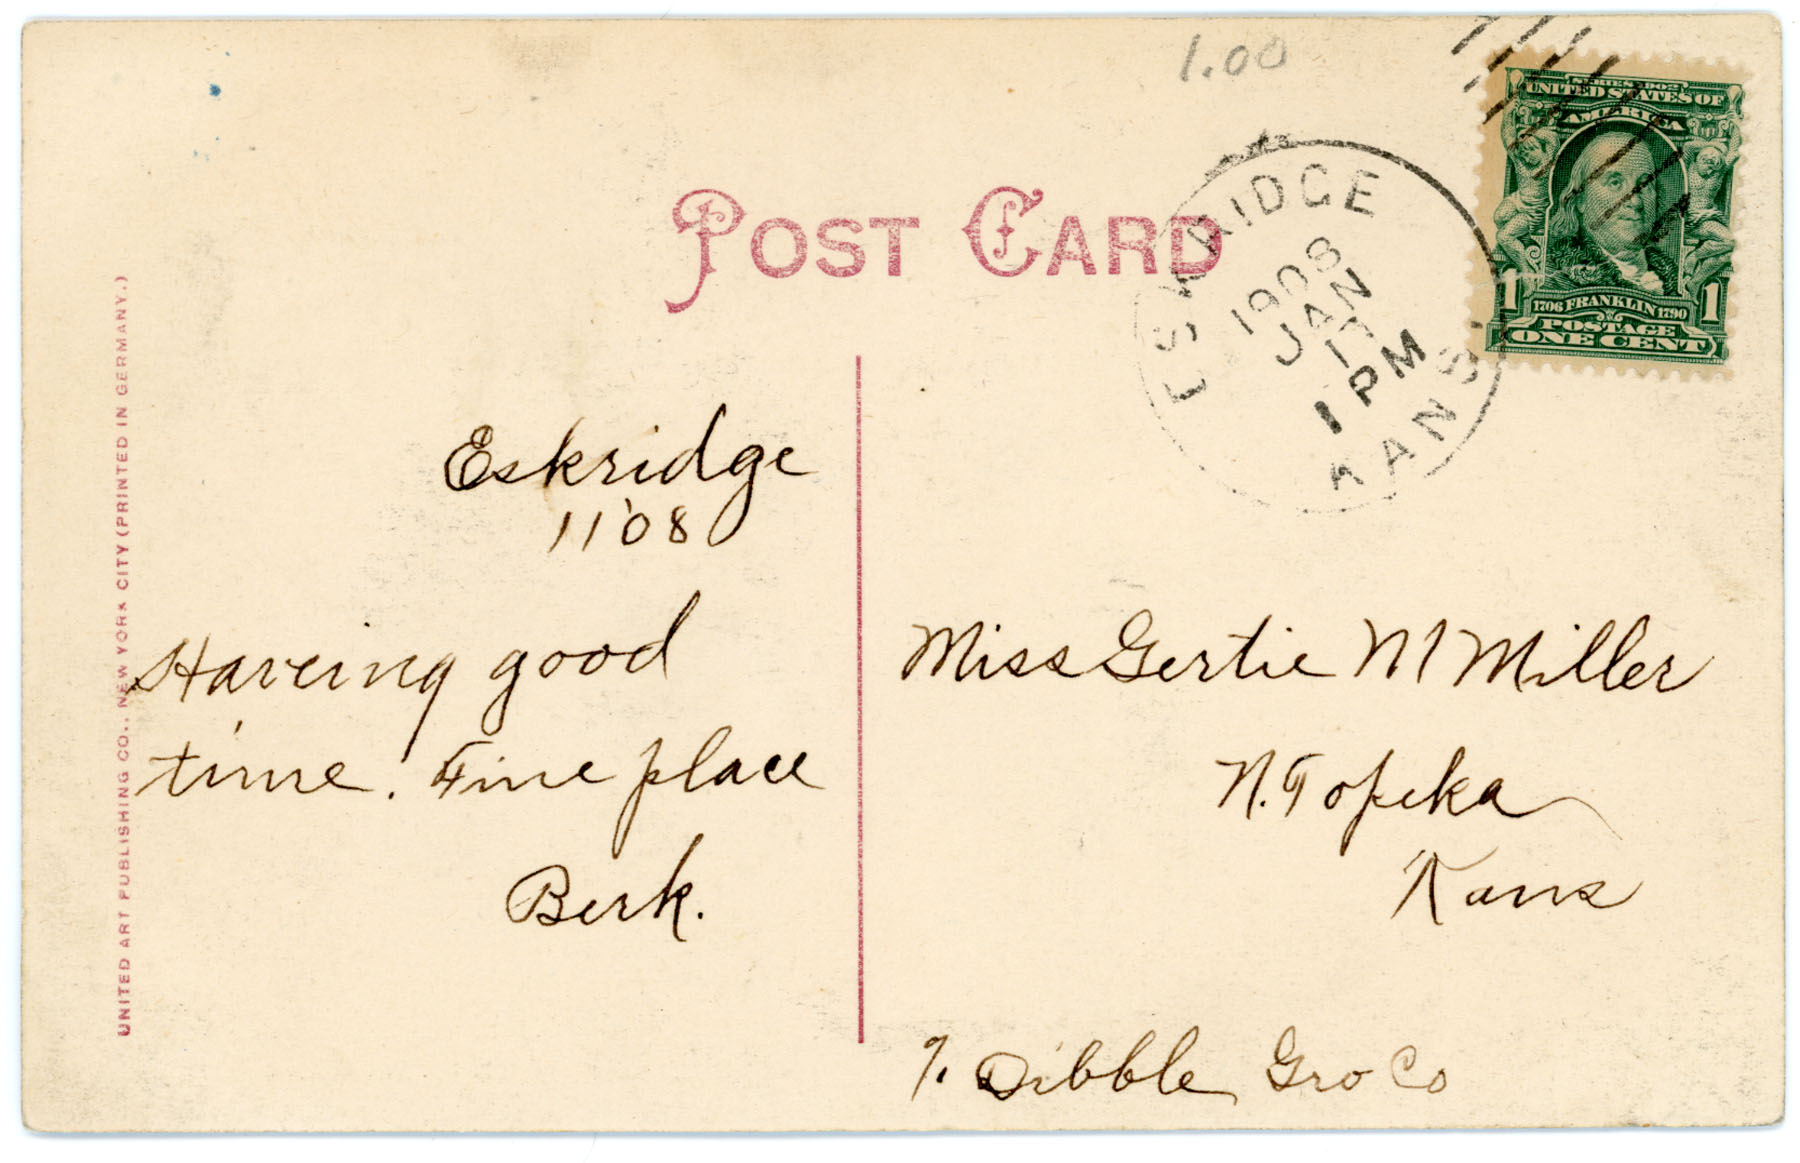 1.00
POST CARD
ESKRIDGE
1908
JAN
17
1 PM
KANS.
SERIES 1902
UNITED STATES OF
AMERICA
1 1706 FRANKLIN 1790 1
POSTAGE
ONE CENT
UNITED ART PUBLISHING CO., NEW YORK CITY (PRINTED IN GERMANY.)
Eskridge
11'08
Haveing good
time. Fine place
Berk.
Miss Gertie M Miller
N. Topeka
Kans
%. Dibble Gro Co